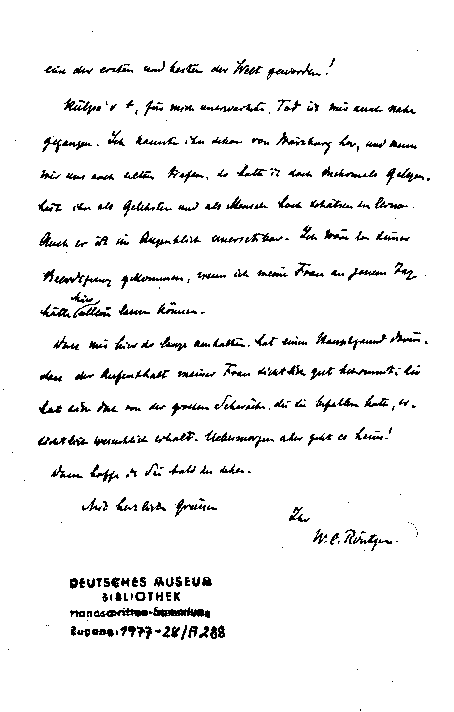 eine der ersten und besten der Welt geworden!
Külpe's †, für mich unerwarteter, Tod ist mir auch nahe
gegangen. Ich kannte ihn schon von Würzburg her, und wenn
wir uns auch selten trafen, so hatte ich doch mehrmals Gelegen-
heit ihn als Gelehrten und als Mensch hoch schätzen zu lernen.
Auch er ist im Augenblick unersetzbar. Ich wäre zu seiner
Beerdigung gekommen, wenn ich meine Frau an jenem Tag
hätte hier allein lassen können.
Dass wir hier so lange aushalten, hat seinen Hauptgrund darin,
dass der Aufenthalt meiner Frau sichtlich gut bekommt; sie
hat sich von der grossen Schwäche, die sie befallen hatte, er-
sichtlich erholt. Uebermorgen aber geht es heim!
Dann hoffe ich Sie bald zu sehen.
Mit herzlichen Grüssen
Ihr
W. C. Röntgen.
DEUTSCHES MUSEUM
BIBLIOTHEK
Handschriften-Sammlung
Zugang: 1977-28/A288